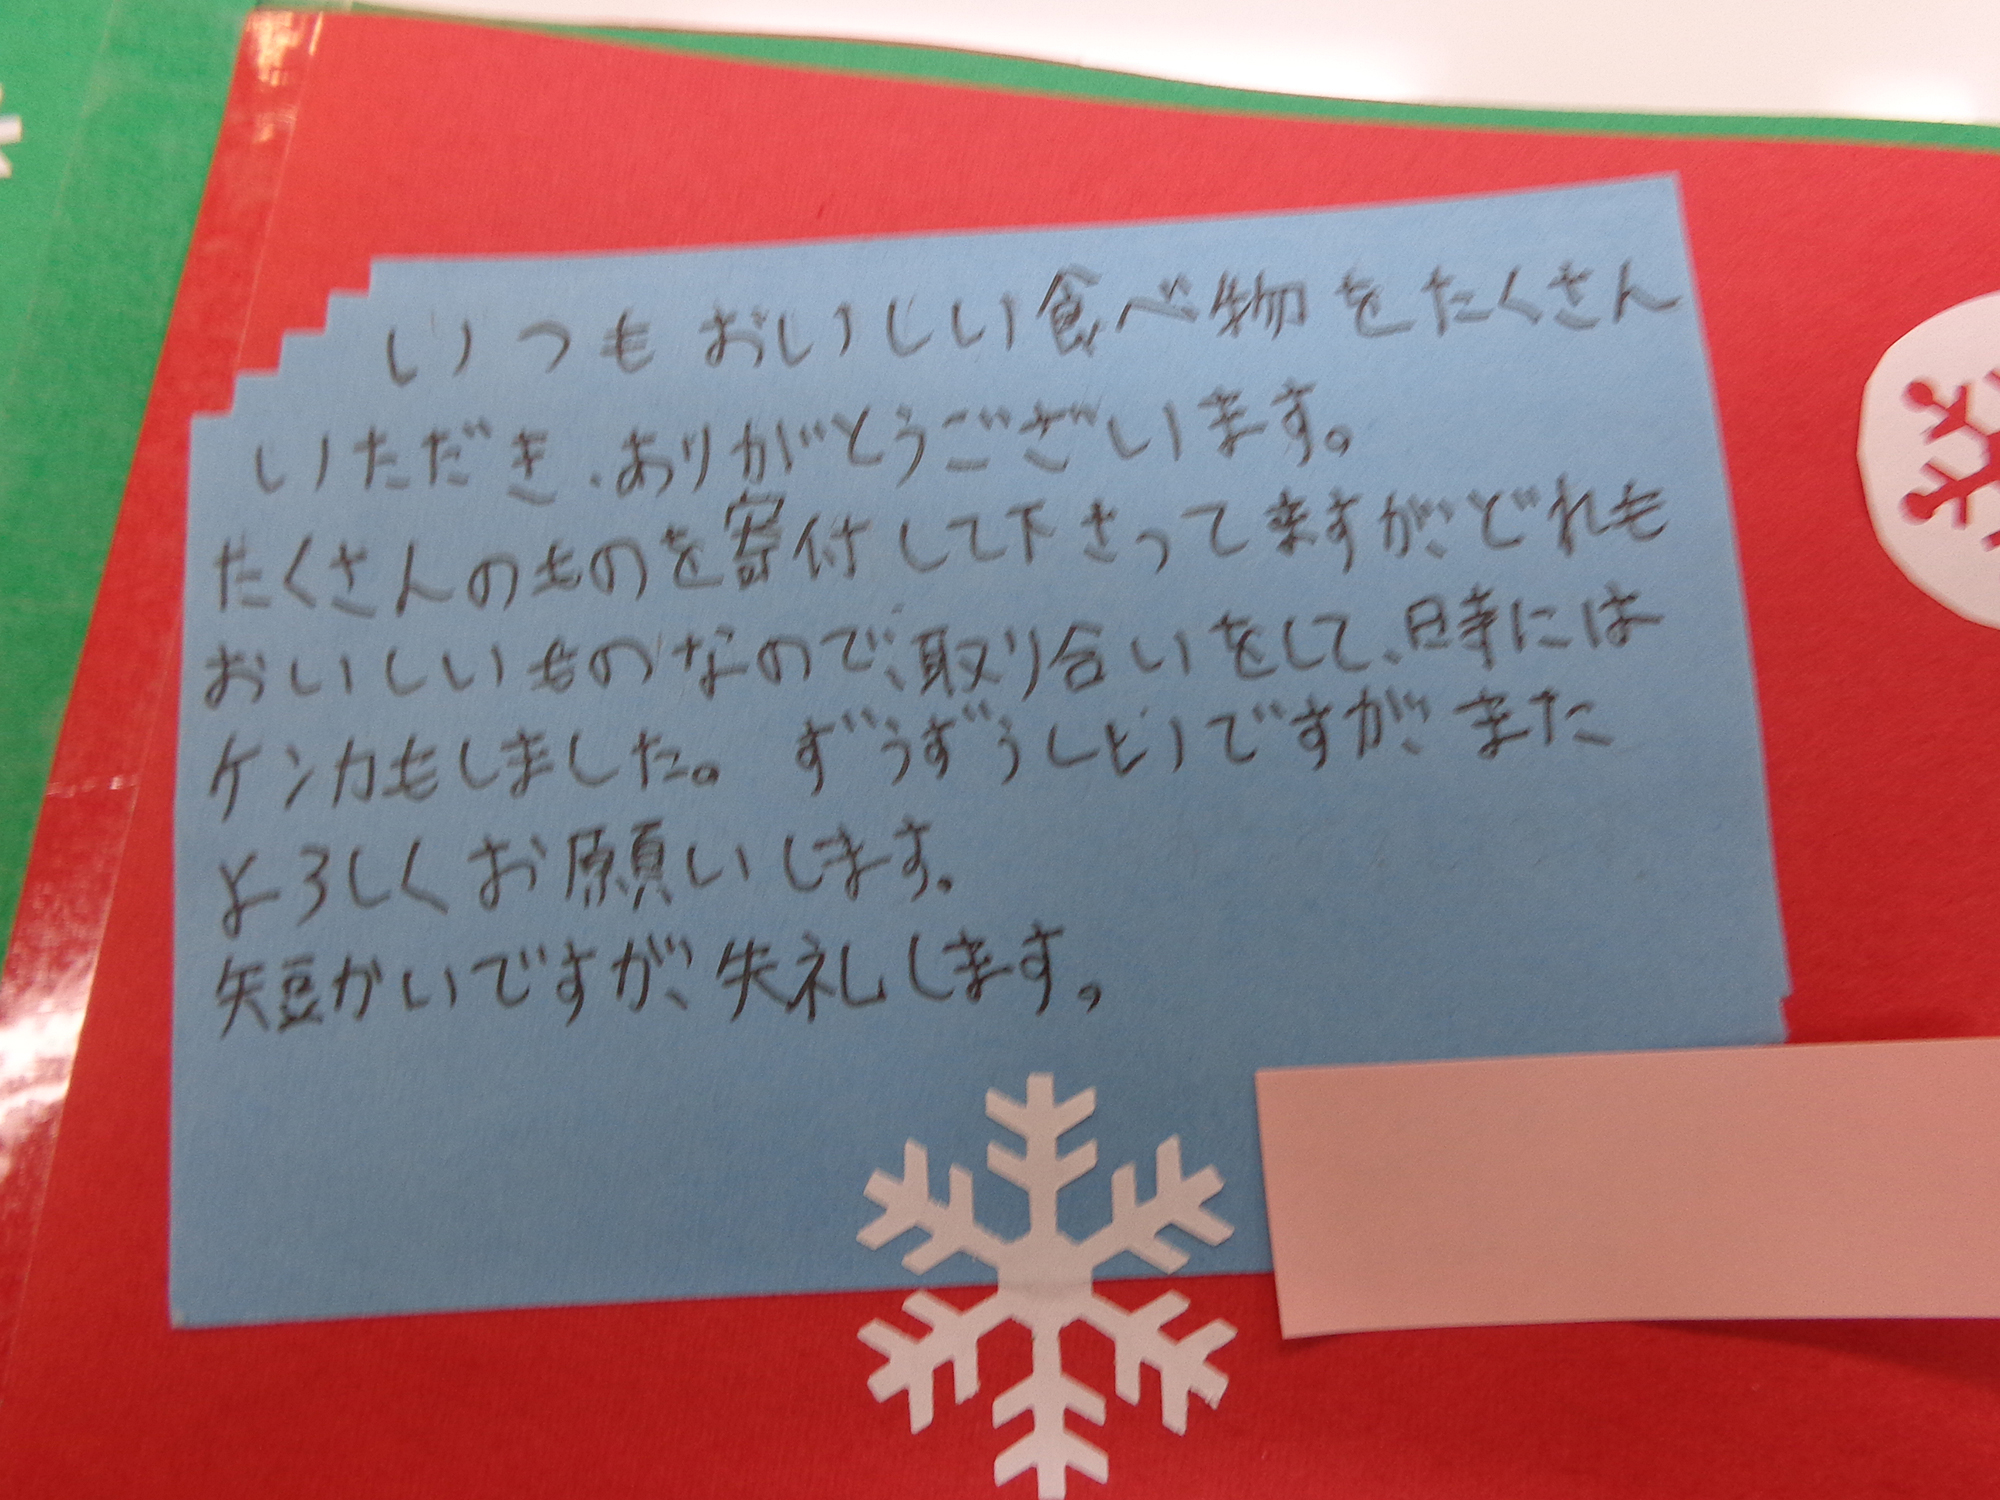 いつもおいしい食べ物をたくさん
いただき、ありがとうございます。
たくさんのものを寄付して下さってますが、どれも
おいしいものなので、取り合いをして、時には
ケンカもしました。ずうずうしいですが、また
よろしくお願いします。
短かいですが、失礼します。